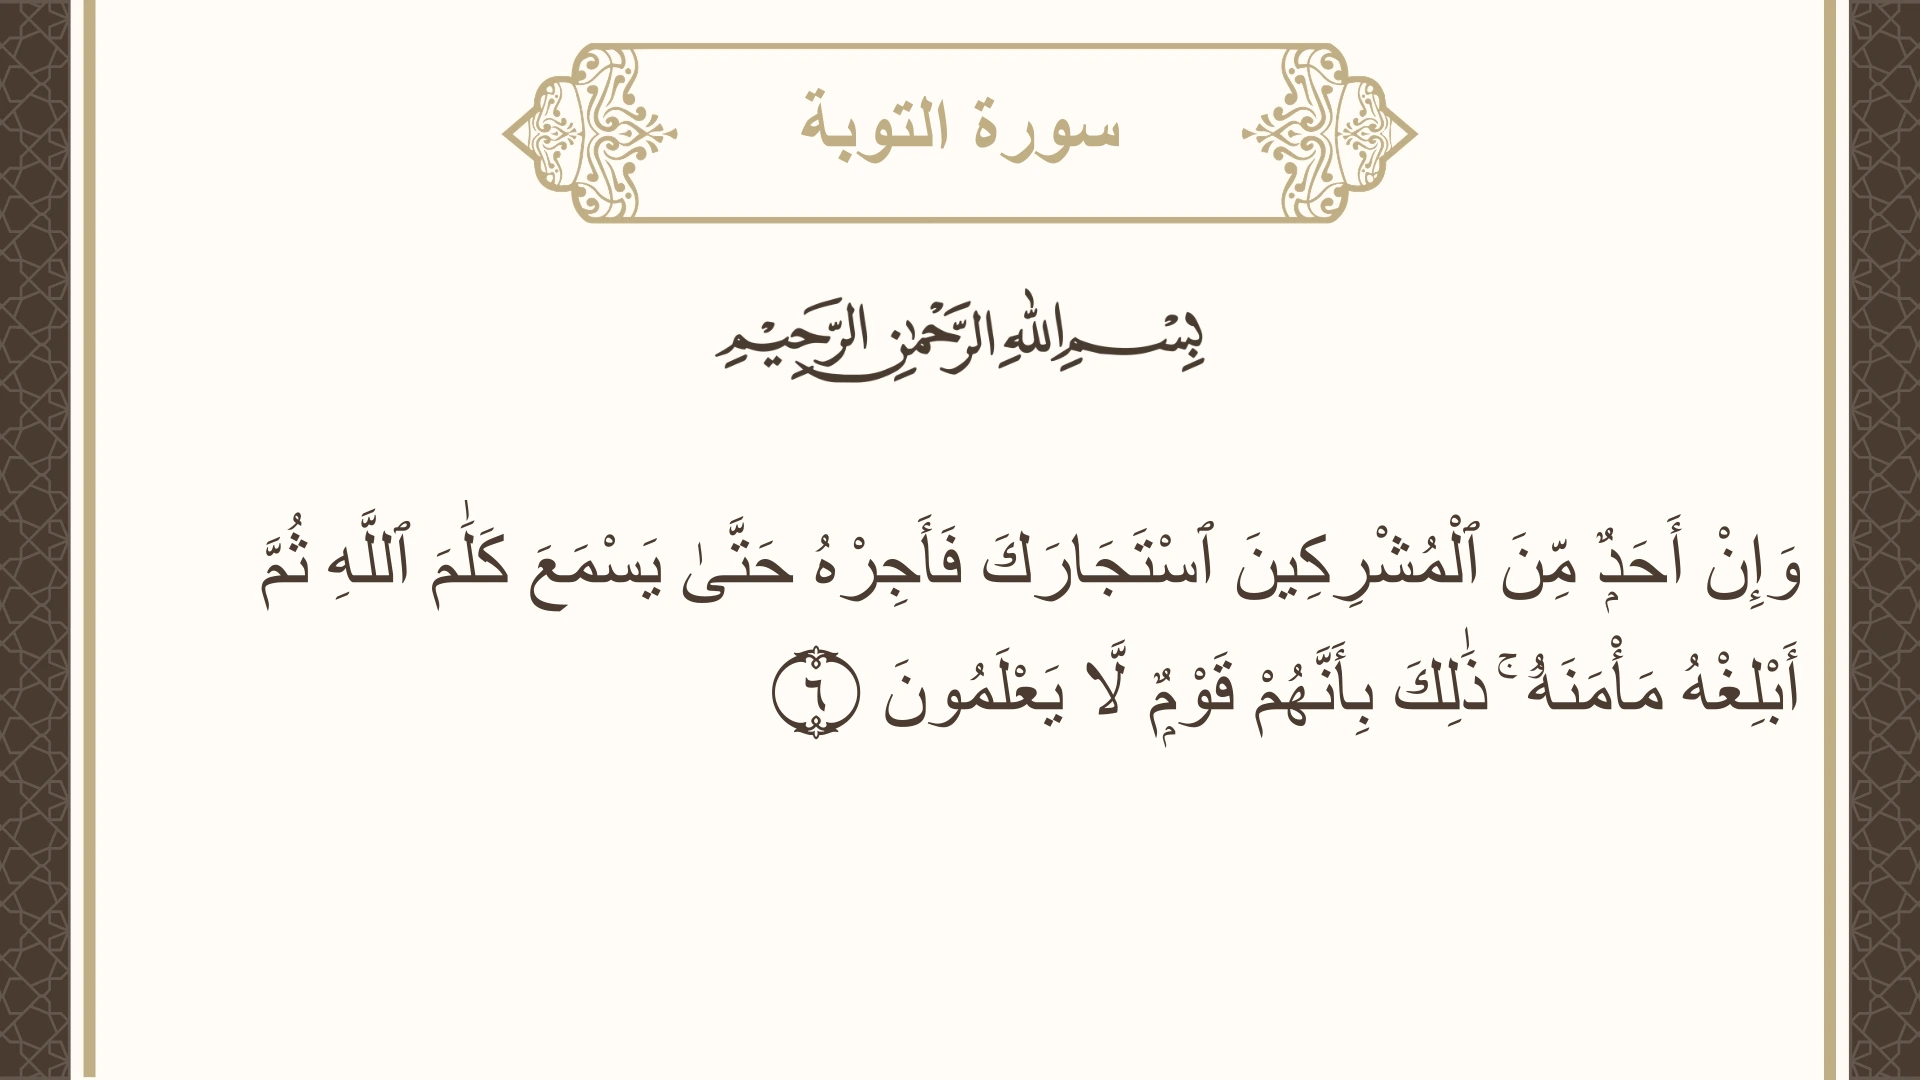 سورة التوبة
بِسْمِ اللهِ الرَّحْمٰنِ الرَّحِيْمِ
وَإِنْ أَحَدٌۭ مِّنَ ٱلْمُشْرِكِينَ ٱسْتَجَارَكَ فَأَجِرْهُ حَتَّىٰ يَسْمَعَ كَلَٰمَ ٱللَّهِ ثُمَّ
أَبْلِغْهُ مَأْمَنَهُۥ ۚ ذَٰلِكَ بِأَنَّهُمْ قَوْمٌۭ لَّا يَعْلَمُونَ ٦